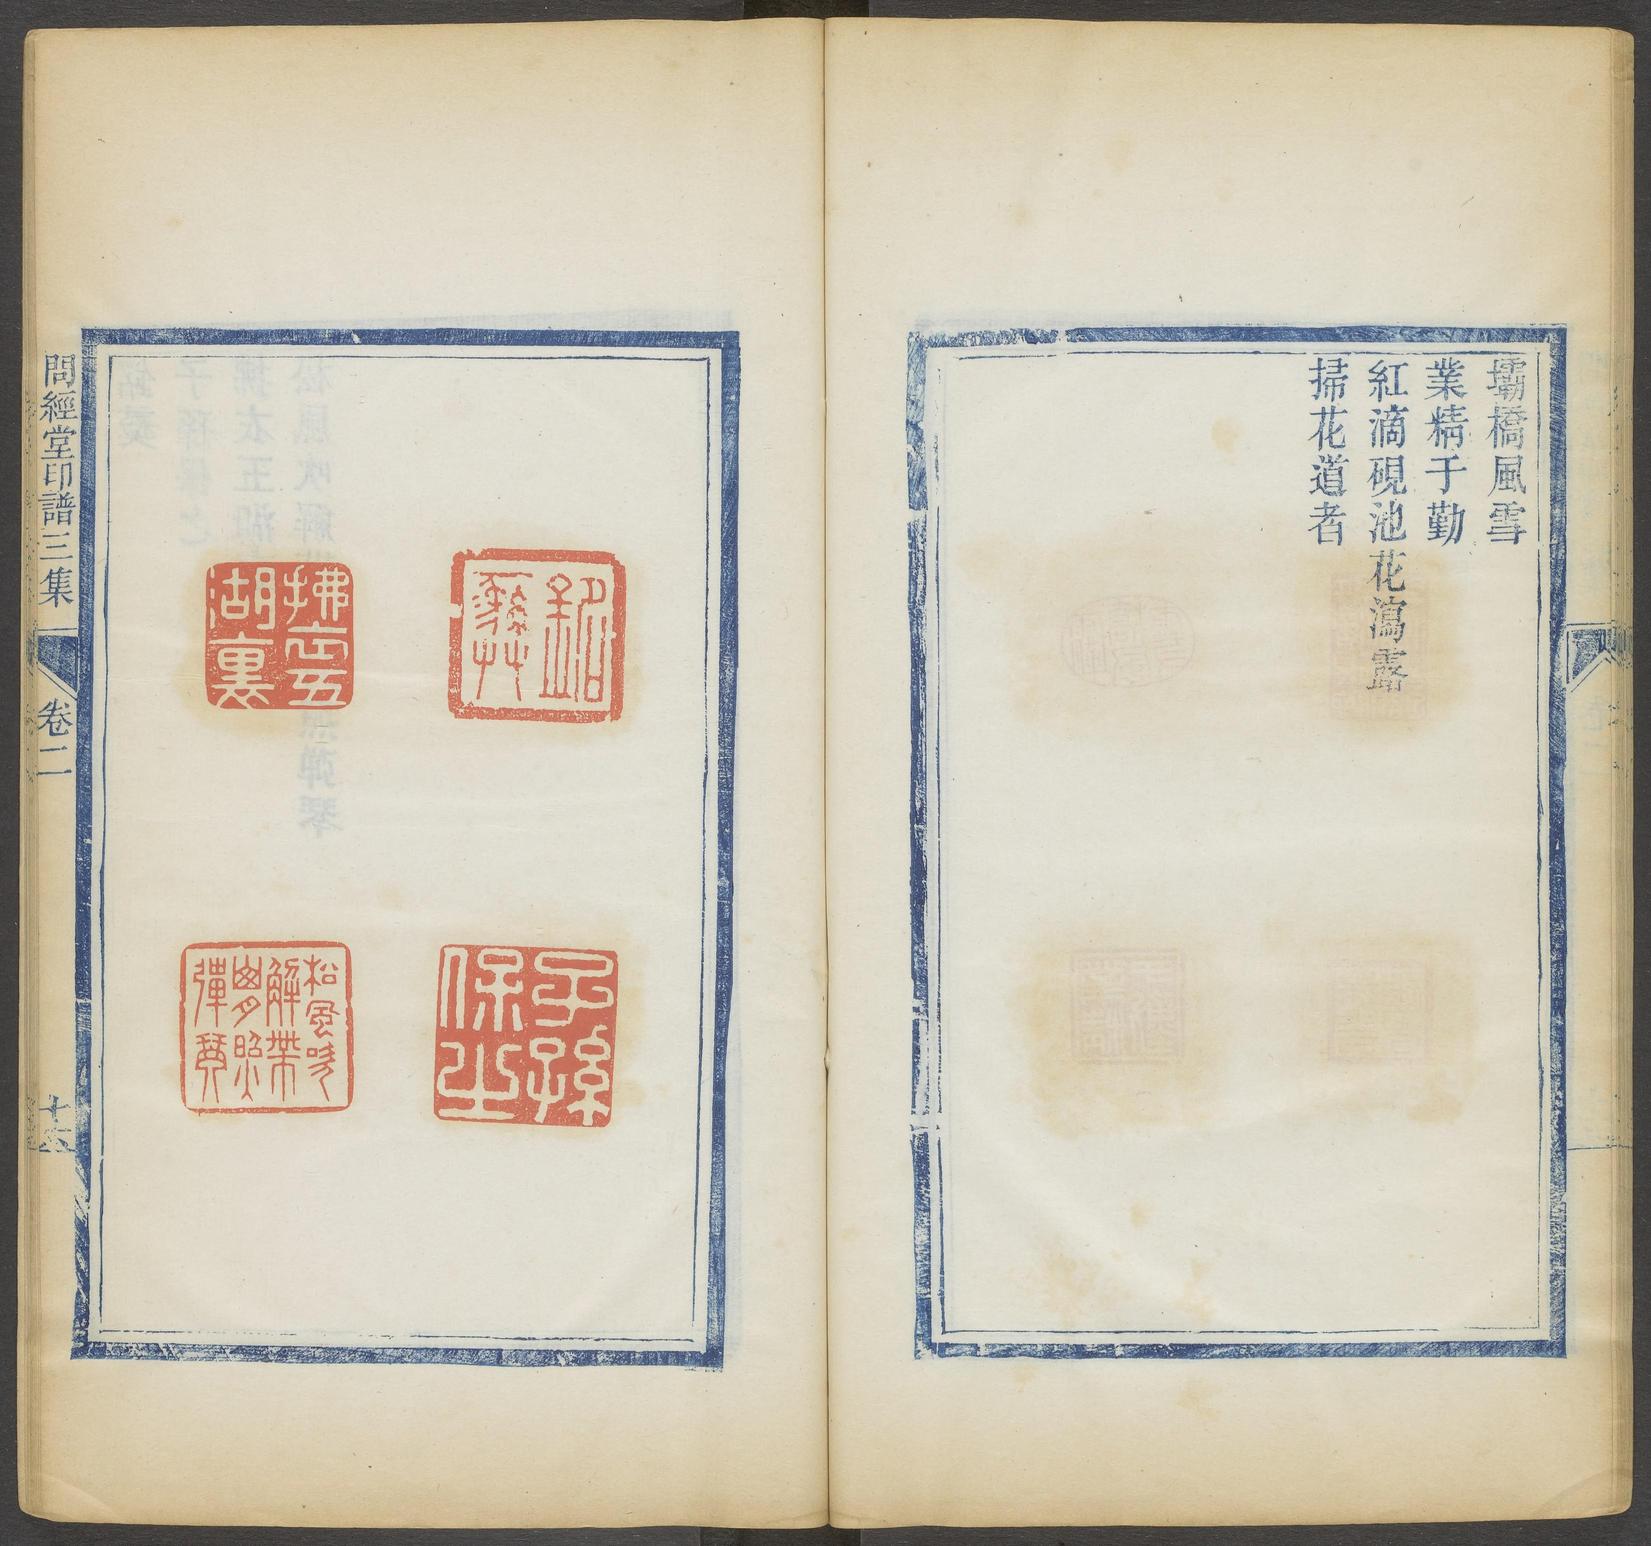 壩橋風雪
業精于勤
紅滴硯池花瀉露
掃花道者
子孫保之
松風吹解帶山月照彈琴
問經堂印譜三集
卷二
十六